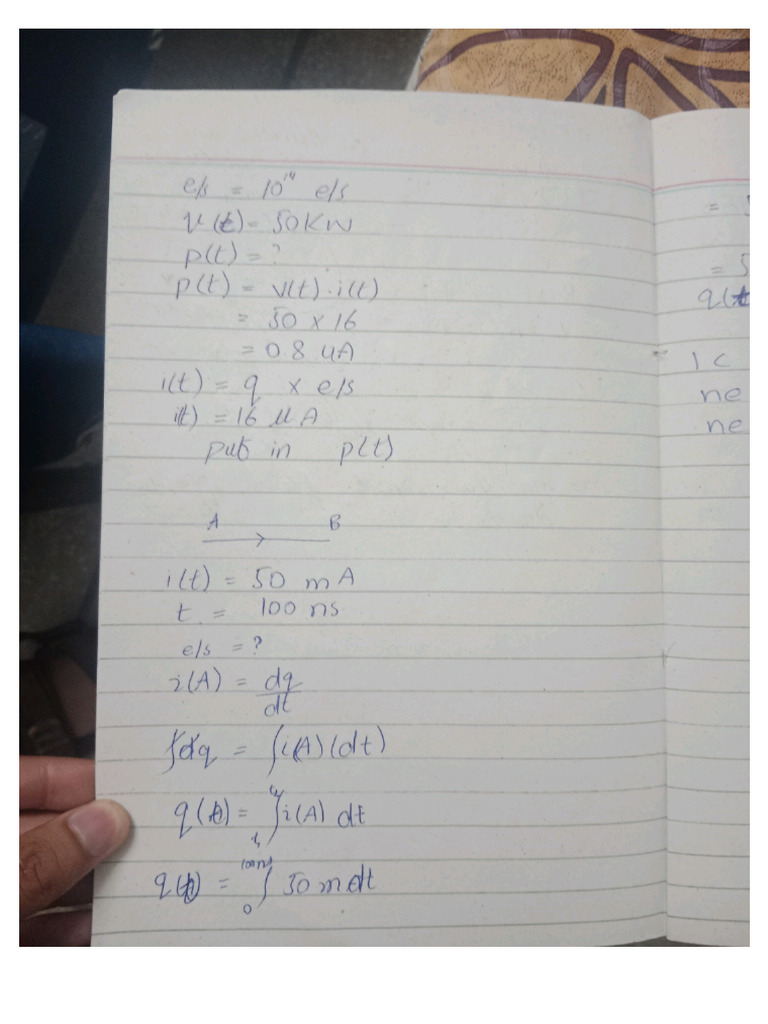 e/s = 10¹⁴ e/s
v(t) = 50KW
p(t) = ?
p(t) = v(t) · i(t)
= 50 x 16
= 0.8 uA
i(t) = q x e/s
i(t) = 16 µA
put in p(t)
A B
i(t) = 50 mA
t = 100 ns
e/s = ?
i(A) = dq/dt
∫dq = ∫i(A)(dt)
q(t) = ∫i(A) dt
q(t) = ∫₀¹⁰⁰ⁿ 50 m dt
=
=
q(t
1 c
ne
ne